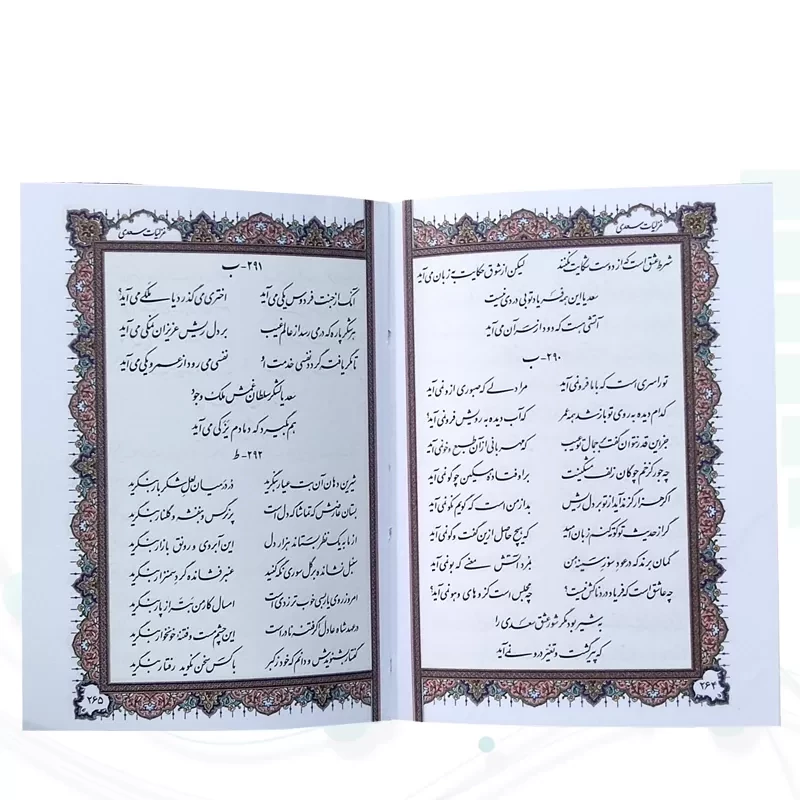 غزلیات سعدی
شرط عشق است که از دوست شکایت نکنند لیکن از شوق حکایت به زبان می‌آید
سعدیا این همه فریاد تو بی دردی نیست
آتشی هست که دود از سر آن می‌آید
۲۹۰-ب
تو را سری است که با ما فرو نمی‌آید مرا دلی که صبوری از او نمی‌آید
کدام دیده به روی تو باز شد همه عمر که آب دیده به رویش فرو نمی‌آید؟
جز این قدر نتوان گفت بر جمال تو عیب که مهربانی از آن طبع و خو نمی‌آید
چه جور کز خم چوگان زلف مشکینت بر اوفتاده مسکین چو گو نمی‌آید
اگر هزار گزند آید از تو بر دل ریش بد از من است که گویم نکو نمی‌آید
گر از حدیث تو کوته کنم زبان امید که هیچ حاصل از این گفت و گو نمی‌آید
گمان برند که در عود سوز سینه من بمرد آتش معنی که بو نمی‌آید
چه عاشق است که فریاد دردناکش نیست؟ چه مجلس است کز او های و هو نمی‌آید
به شیر بود مگر شور عشق سعدی را
که پیر گشت و تغیر در او نمی‌آید
۲۶۴
غزلیات سعدی
۲۹۱-ب
آنک از جنت فردوس یکی می‌آید اختری می‌گذرد یا ملکی می‌آید؟
هر شکر پاره که در می‌رسد از عالم غیب بر دل ریش عزیزان نمکی می‌آید
تا مگر یافته گردد نفسی خدمت او نفسی می‌رود از عمر و یکی می‌آید
سعدیا لشکر سلطان غمش ملک وجود
هم بگیرد که دمادم یزکی می‌آید
۲۹۲-ط
شیرین دهان آن بت عیار بنگرید در در میان لعل شکربار بنگرید
بستان عارضش که تماشاگه دل است پر نرگس و بنفشه و گلنار بنگرید
از ما به یک نظر بستاند هزار دل این آبروی و رونق بازار بنگرید
سنبل نشانده بر گل سوری نگه کنید عنبر فشانده گرد سمنزار بنگرید
امروز روی یار بسی خوب‌تر ز دی است امسال کار من بتر از پار بنگرید
در عهد شاه عادل اگر فتنه نادر است این چشم مست و فتنه خونخوار بنگرید
گفتار بشنویدش و دانم که خود ز کبر با کس سخن نگوید رفتار بنگرید
۲۶۵